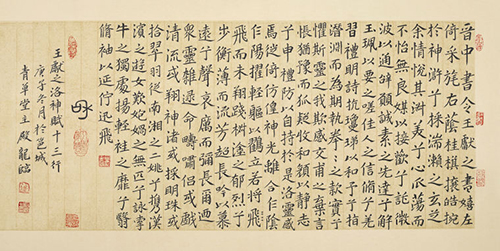 晋中書令王獻之書嬉左
倚采旄右蔭桂旗攘皓捥
於神滸兮採湍瀨之玄芝
余情悅其淑美兮心蕩而
不怡無良媒以接歡兮託微
波以通辭願誠素之先達兮解
玉珮以要之嗟佳人之信脩兮羌
習禮明詩抗瓊珶以和予兮指
潛淵而為期執拳之款實兮
懼斯靈之我欺感交甫之棄言
悵猶豫狐疑收和顏以靜志
兮申禮防以自持於是洛靈感
焉徙倚仿偟神光離合乍陰
乍陽擢輕軀以鶴立若將飛
飛而未翔踐椒塗之郁烈兮
步蘅薄而流芳超長吟以慕
遠兮聲哀厲而彌長爾迺
衆靈雜遝命疇嘯侶或戲
清流或翔神渚或採明珠或
拾翠羽從南湘之二姚兮攜漢
濱之遊女歎匏媧之無匹兮詠牽
牛之獨處揚輕袿之靡兮翳
脩袖以延佇迅飛
王獻之洛神賦十三行
庚子冬月於邑城
青草堂主殿龍臨